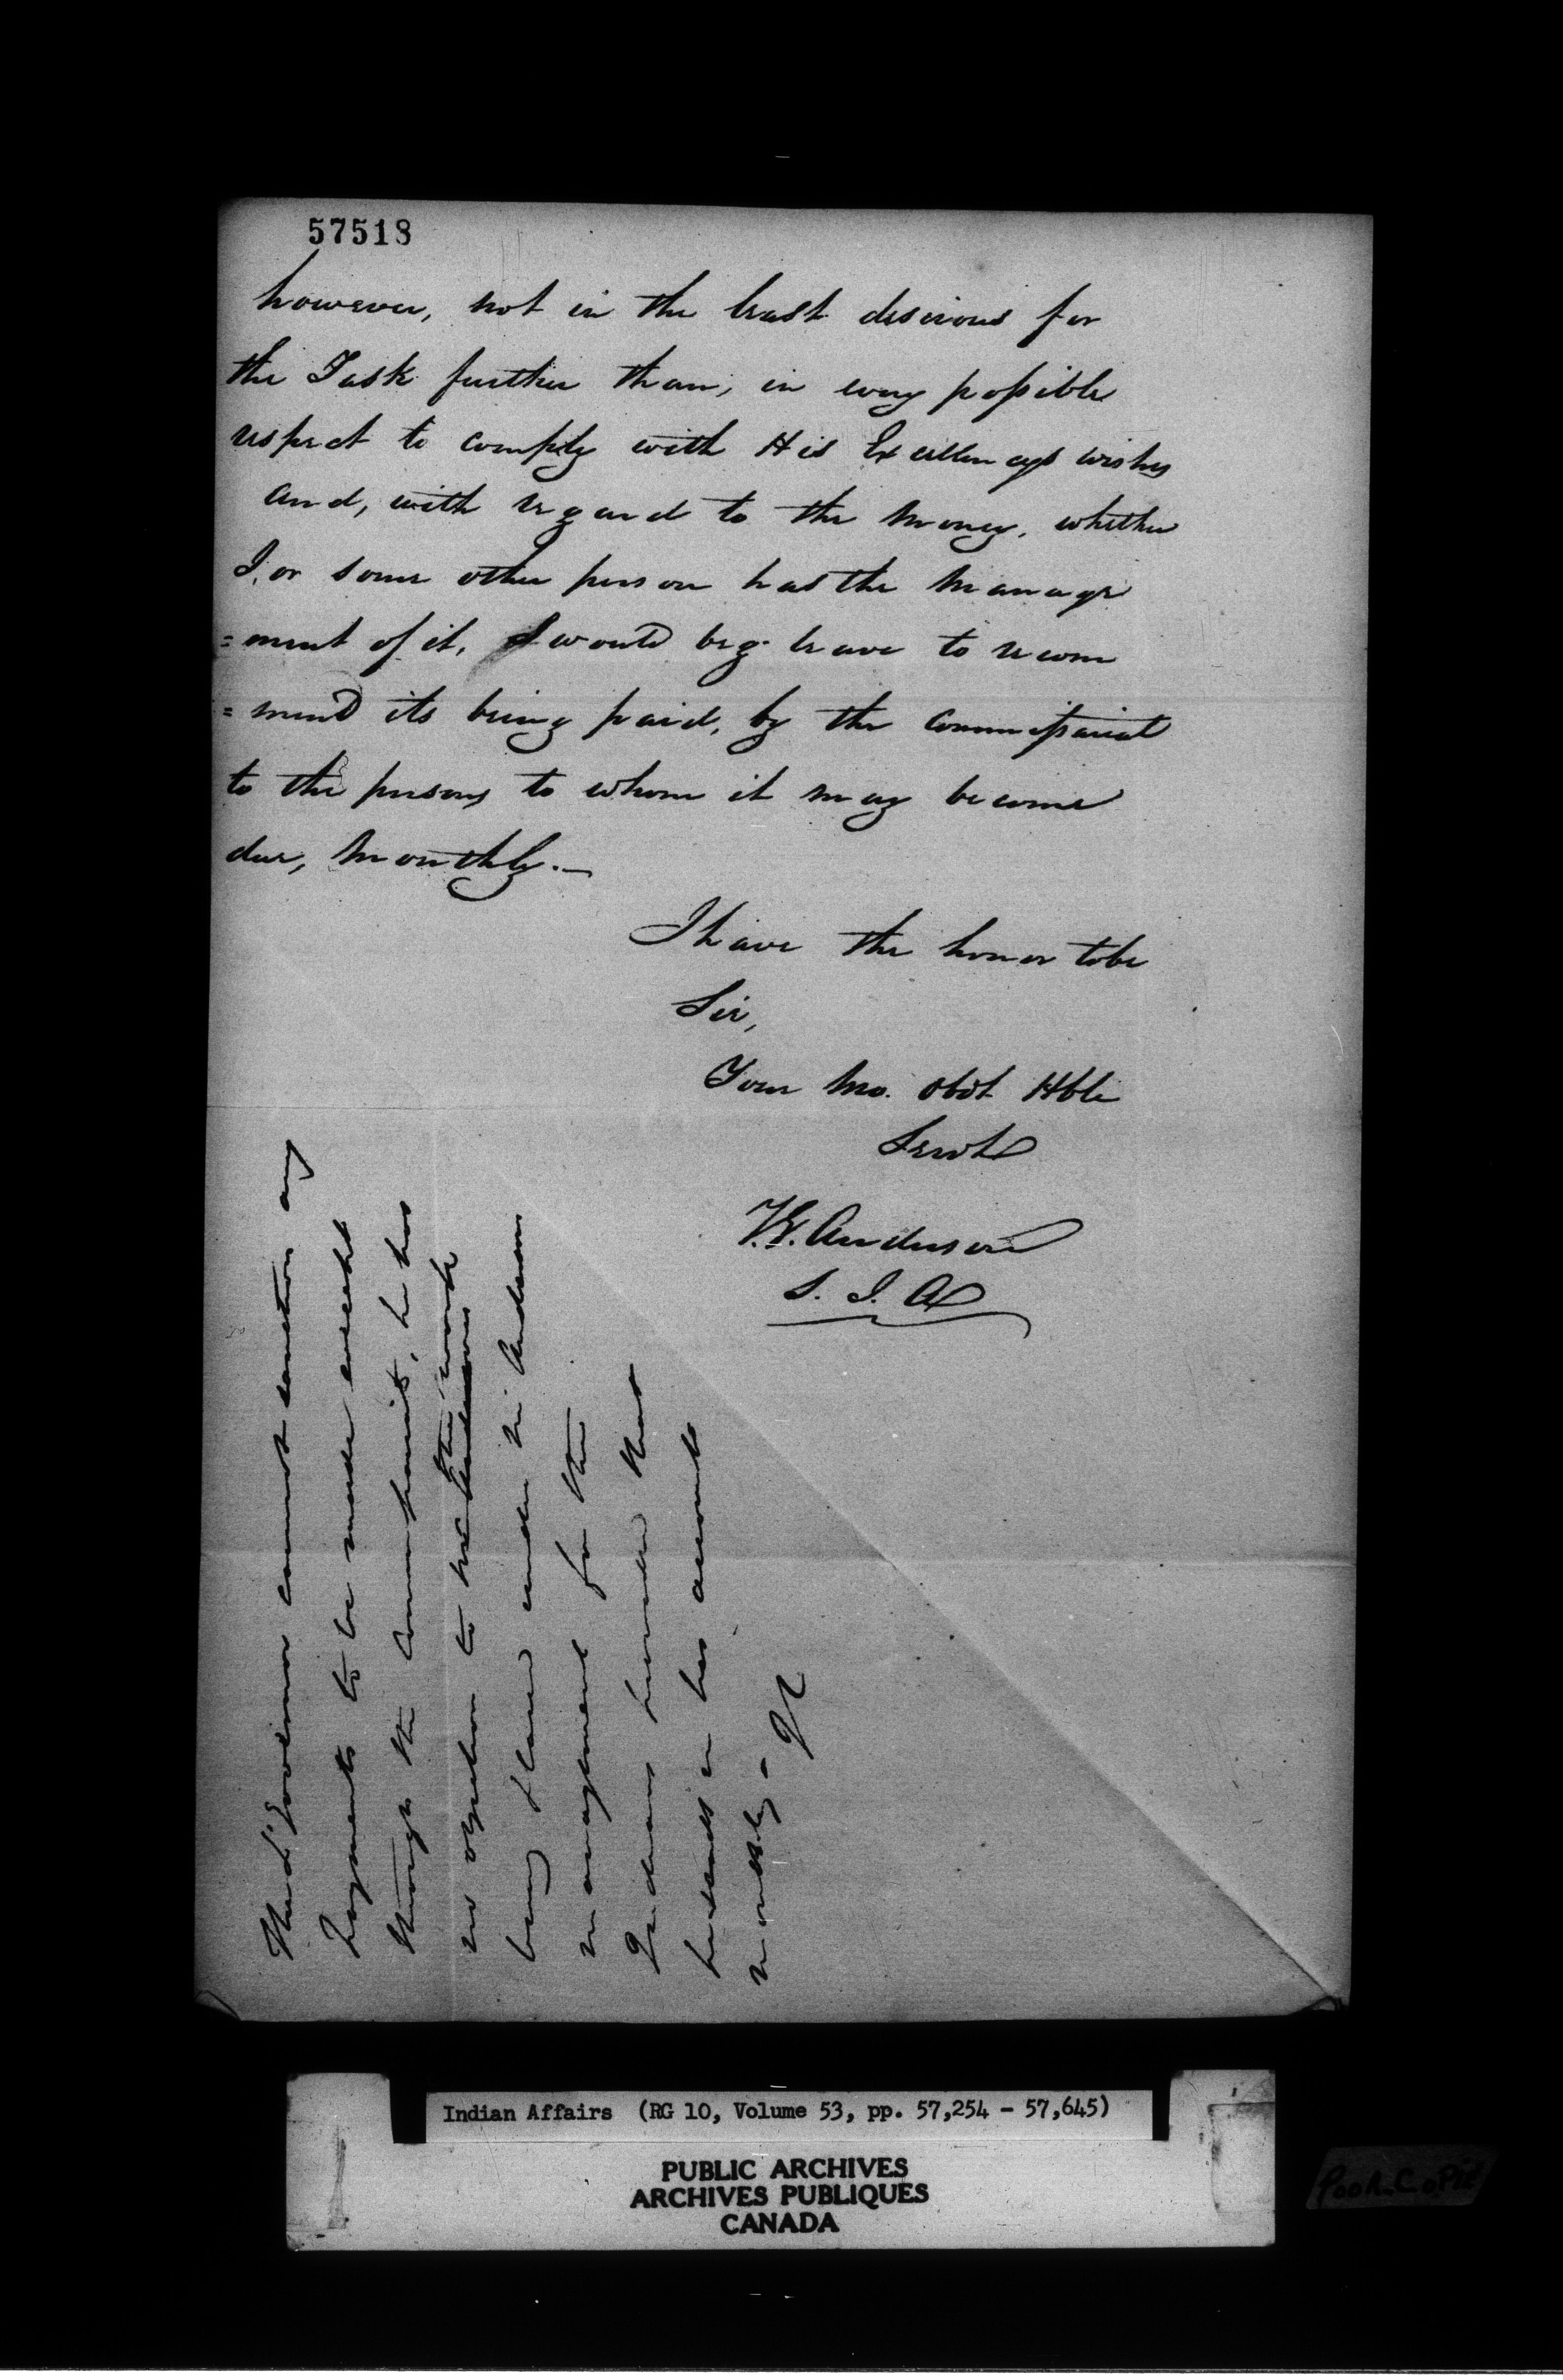 57518
however, not in the least desirous for
the Task further than, in every possible
respect to comply with His Excellencys wishes
and, with regard to the money, whether
I, or some other person has the manage
=ment of it, I would beg leave to recom
=mend its being paid, by the Commissariat
to the persons to whom it may become
due, monthly.—
I have the honor to be
Sir,
Your Mo. Obdt Hble
Servt
T. G. Anderson
S. I. A
The Lt Governor cannot sanction any
Payments to be made except
through the Commissariat, he has
the work
no objection to Mr Andersons
being placed under Mr Andersons
management for the
Indians provided that
he sends in his accounts
monthly –
Indian Affairs (RG 10, Volume 53, pp. 57,254 - 57,645)
PUBLIC ARCHIVES
ARCHIVES PUBLIQUES
CANADA
Poor Copie